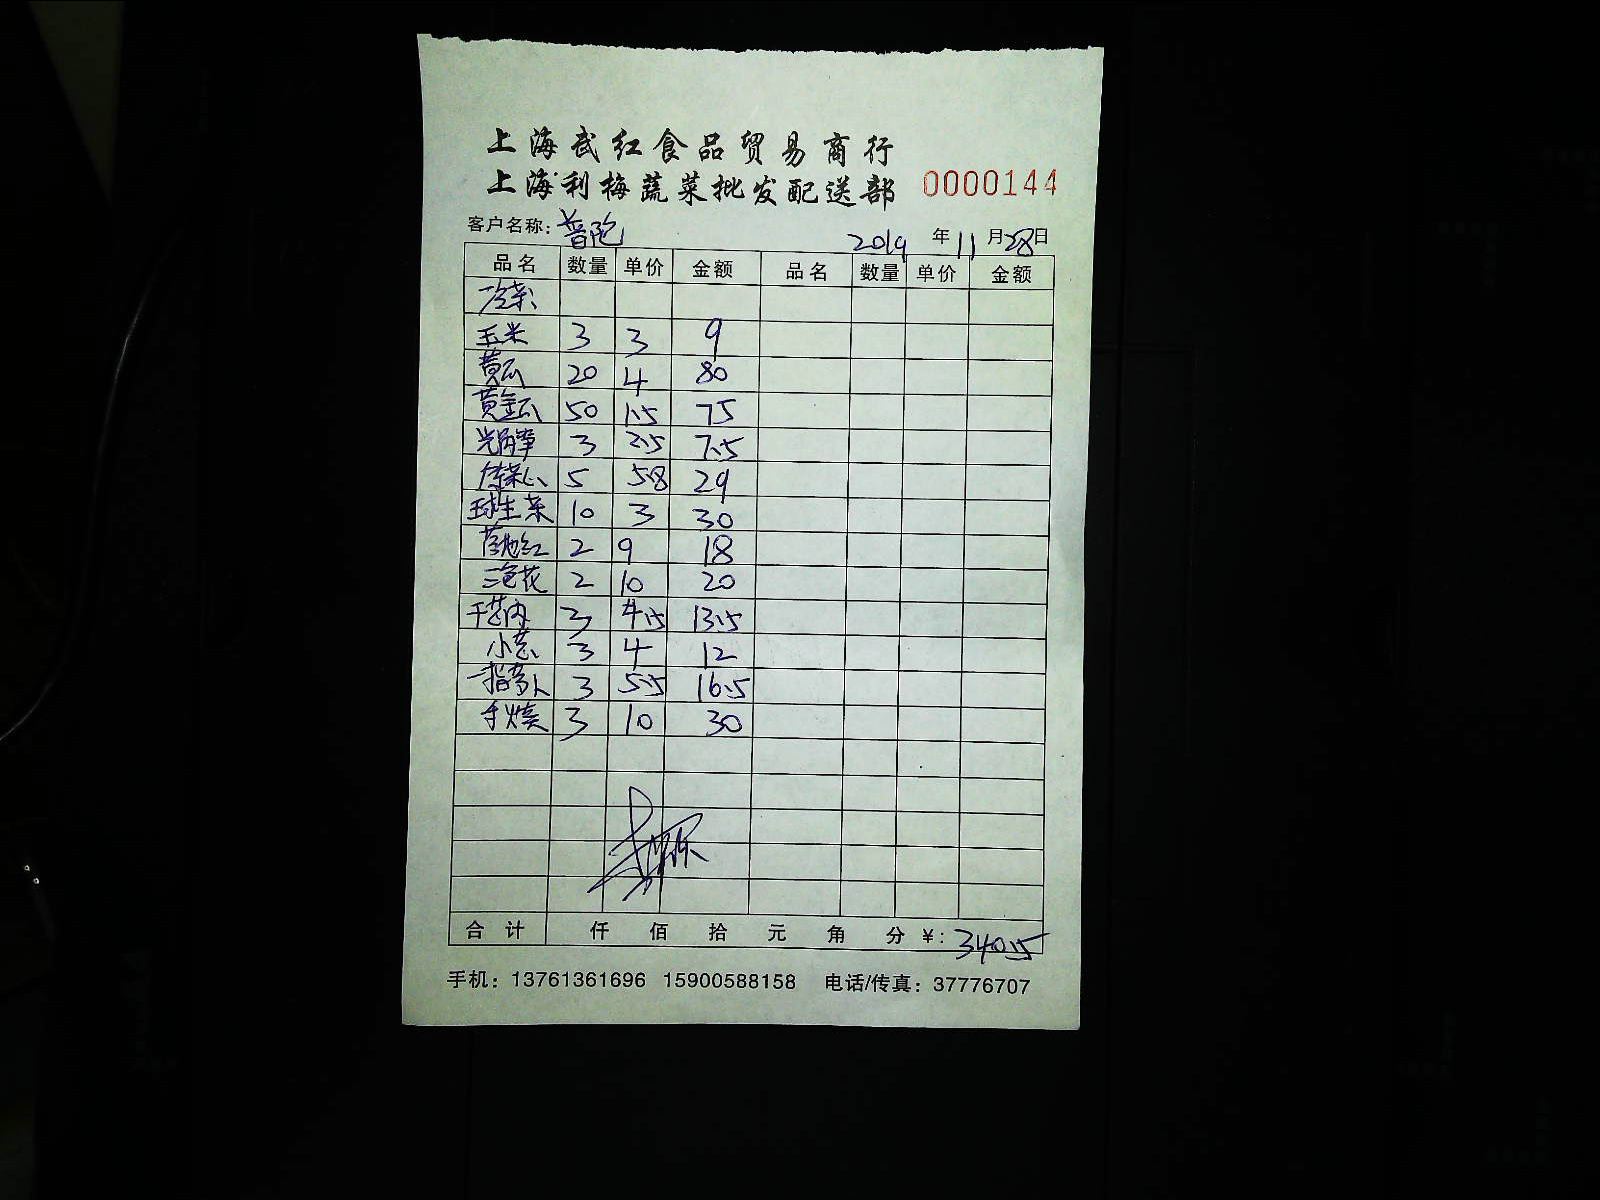 上海武红食品贸易商行
上海利梅蔬菜批发配送部 0000144
客户名称: 普陀 2019 年 11 月 28 日
品名 数量 单价 金额 品名 数量 单价 金额
冷菜
玉米 3 3 9
黄瓜 20 4 80
黄金瓜 50 1.5 75
3 2.5 7.5
5 5.8 29
球生菜 10 3 30
2 9 18
三色花 2 10 20
3 4.5 13.5
小葱 3 4 12
3 5.5 16.5
3 10 30
合计 仟 佰 拾 元 角 分 ¥: 340.5
手机: 13761361696 15900588158 电话/传真: 37776707